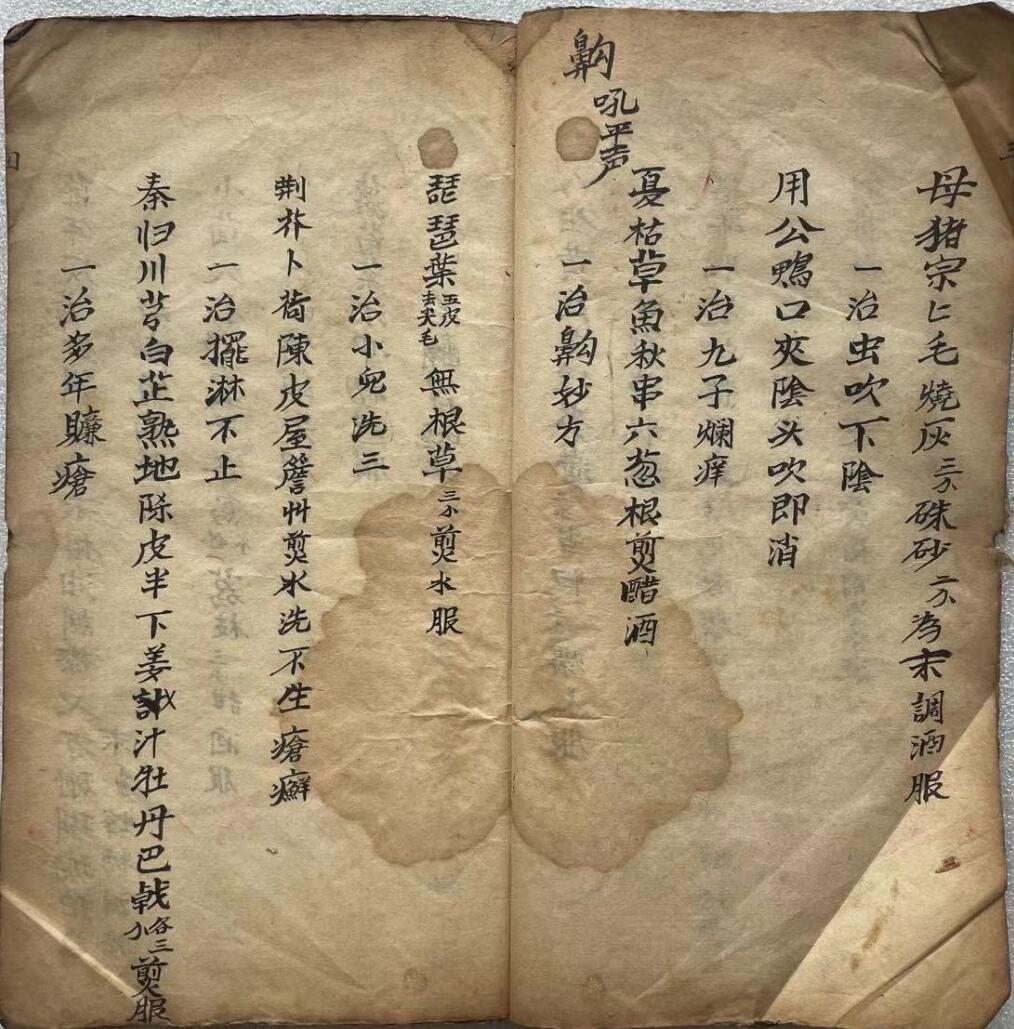 母猪宗匕毛燒灰三分硃砂二分為末調酒服
一治虫吹下陰
用公鴨口夾陰头吹即消
一治九子爛痒
夏枯草魚秋串六葱根煎醋酒
一治齁妙方
齁
吼平声
琵琶葉去尖毛五皮無根草三分煎水服
一治小兒洗三
荆芥卜荷陳皮屋簷艸煎水洗不生瘡癬
一治擺淋不止
秦归川芎白芷熟地陈皮半下姜汁牡丹巴戟各三分煎服
一治多年賺瘡